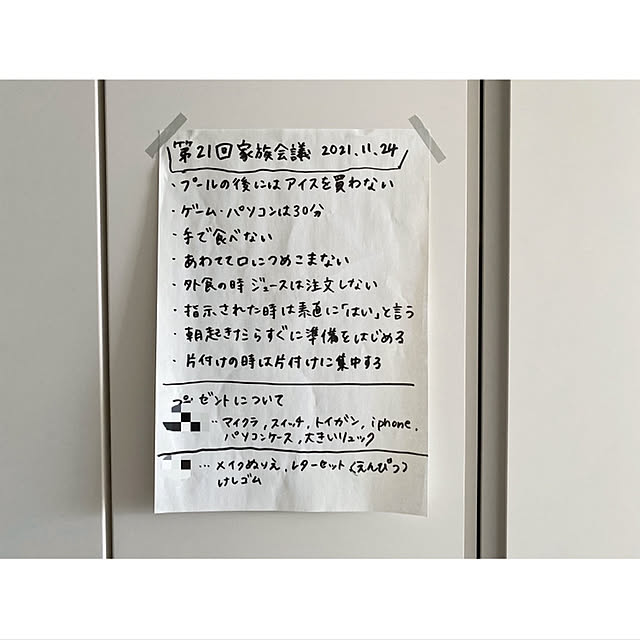 第21回家族会議 2021.11.24
・プールの後にはアイスを買わない
・ゲーム・パソコンは30分
・手で食べない
・あわてて口につめこまない
・外食の時 ジュースは注文しない
・指示された時は素直に「はい」と言う
・朝起きたらすぐに準備をはじめる
・片付けの時は片付けに集中する
プレゼントについて
‥マイクラ,スイッチ,トイガン,iphone,
パソコンケース,大きいリュック
…メイクぬりえ,レターセット(えんぴつ)
けしゴム